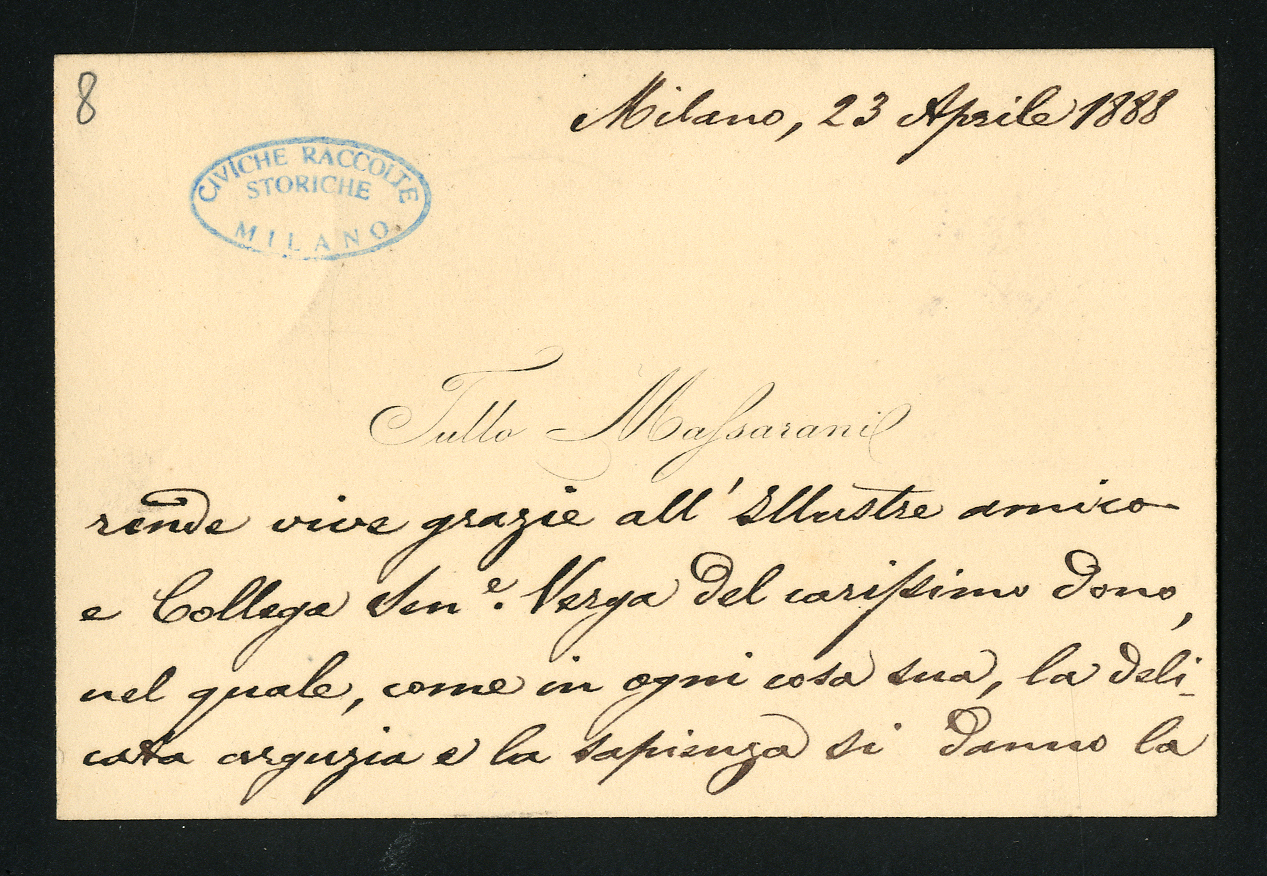 8
Milano, 23 Aprile 1888
CIVICHE RACCOLTE
STORICHE
MILANO
Tullo Massarani
rende vive grazie all'Illustre amico
e Collega Sen.e Verga del carissimo dono,
nel quale, come in ogni cosa sua, la deli-
cata arguzia e la sapienza si danno la